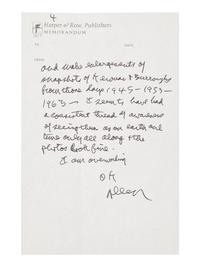 4
Harper & Row, Publishers
MEMORANDUM
TO
DATE
FROM
and make enlargements of
snapshots of Kerouac & Burroughs
from those days 1945 - 1953 -
1963 - I seem to have had
a consistent thread of awareness
of seeing them as on earth one
time only all along & the
photos look fine.
I am overworking
OK
Allen